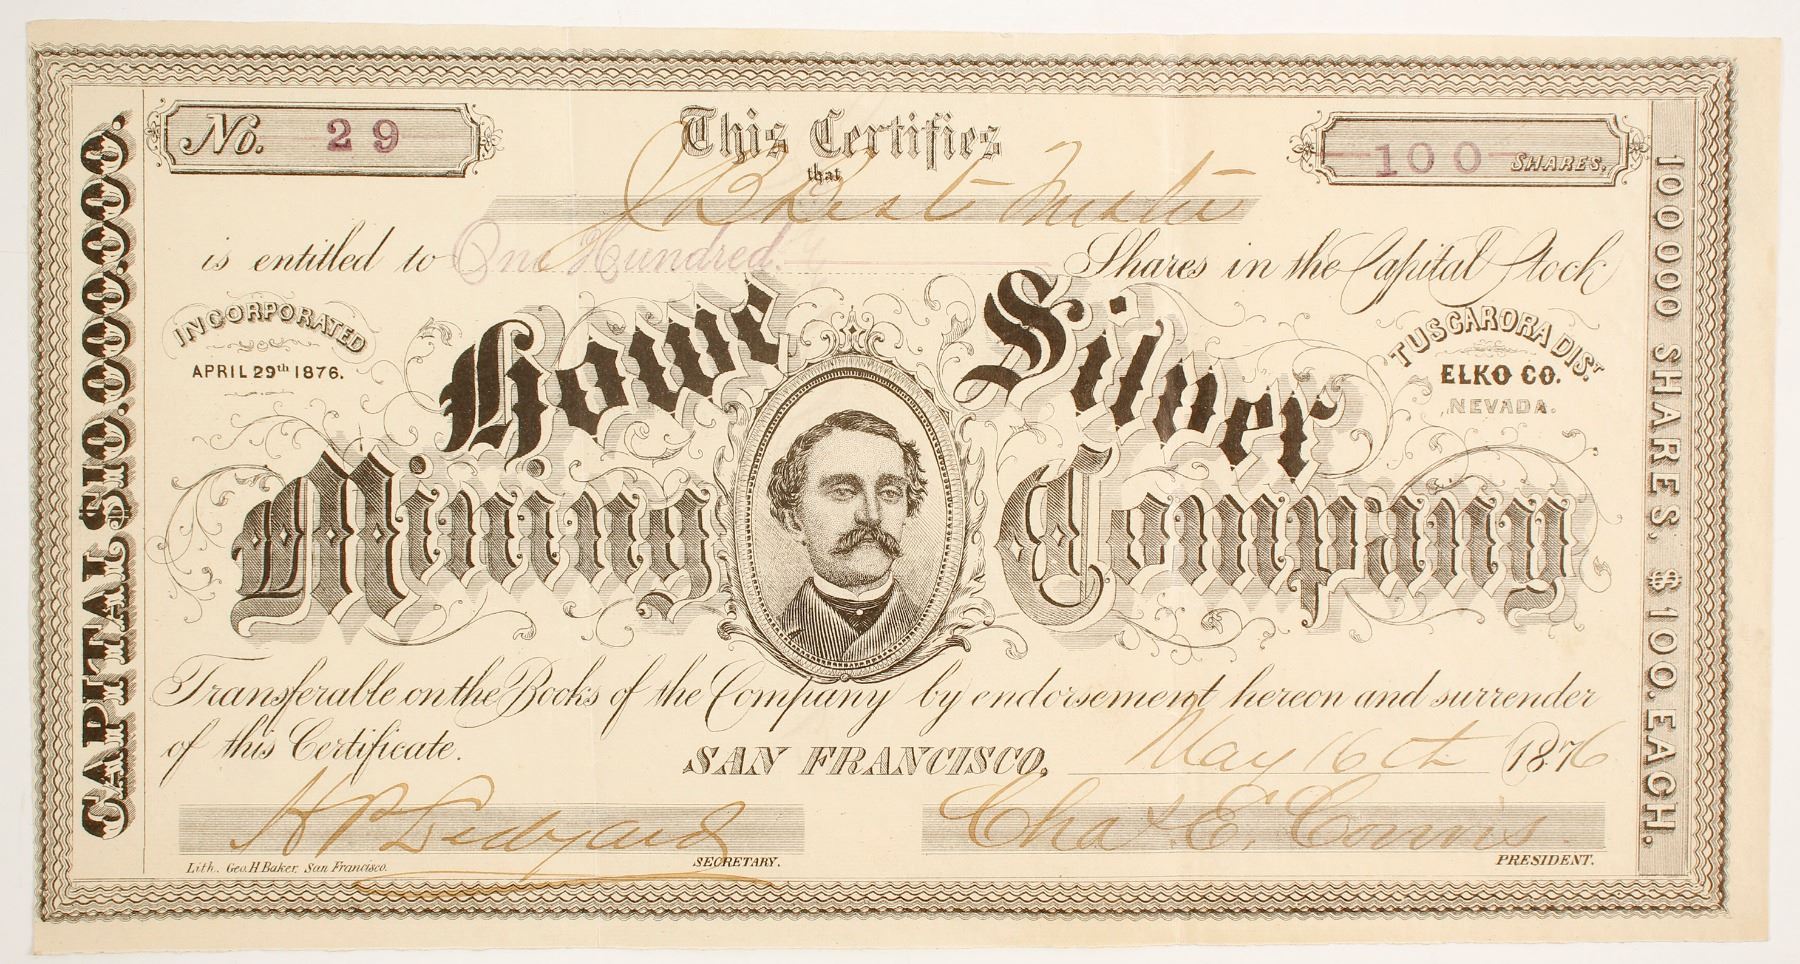 CAPITAL $10.000.000.
No. 29
This Certifies
100 SHARES.
that
J B Best Trustee
is entitled to One Hundred. Shares in the Capital Stock
INCORPORATED
APRIL 29th 1876.
Howe Silver
Mining Company
TUSCARORA DIST.
ELKO CO.
NEVADA.
Transferable on the Books of the Company by endorsement hereon and surrender
of this Certificate.
SAN FRANCISCO, May 16th 1876
H P Ledyard
SECRETARY.
Chas E.
PRESIDENT.
Lith. Geo. H Baker, San Francisco.
100000 SHARES, $100. EACH.